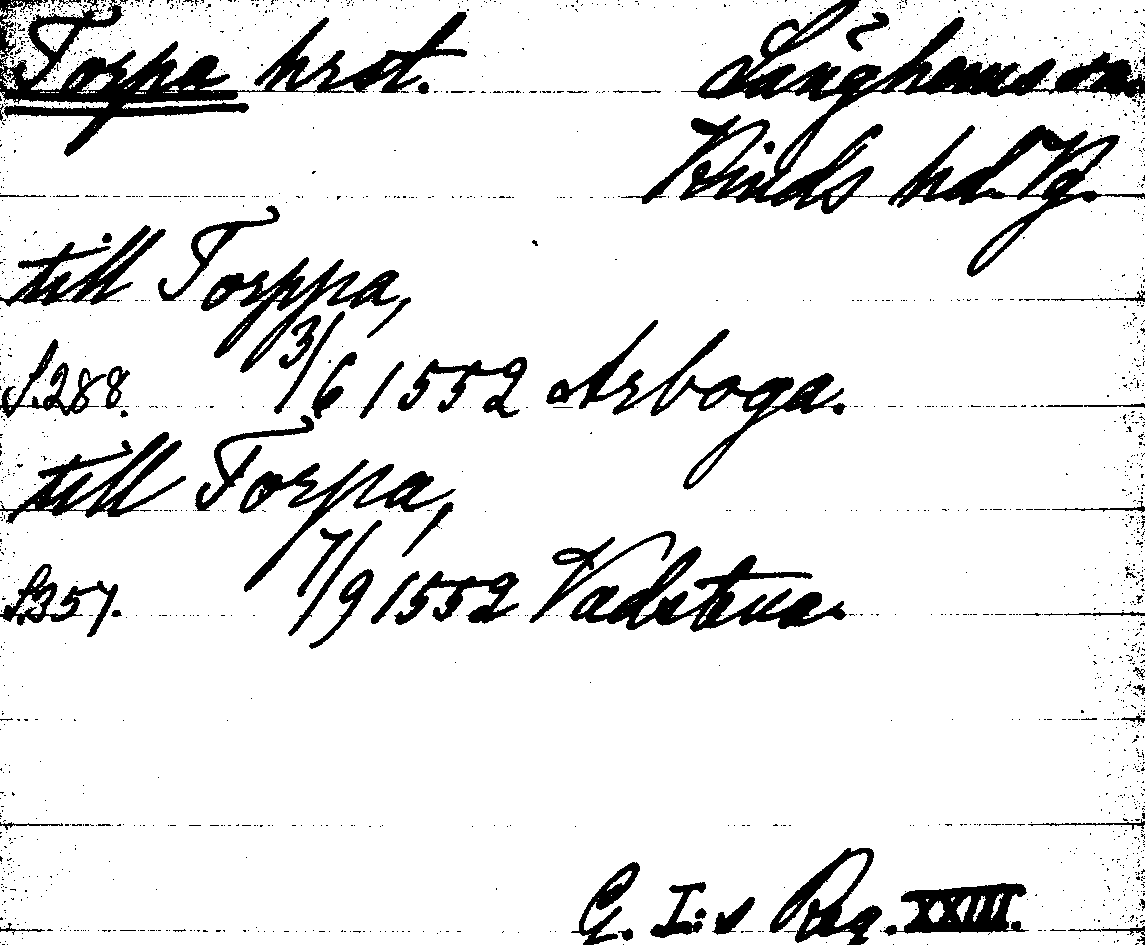 Torpa hrst. Långhems sn.
Kinds hd. Vg.
till Torppa,
S. 288. 3/6 1552 Arboga.
till Torpa,
S. 357. 7/9 1552 Vadstena.
G. I:s Reg. XXIII.